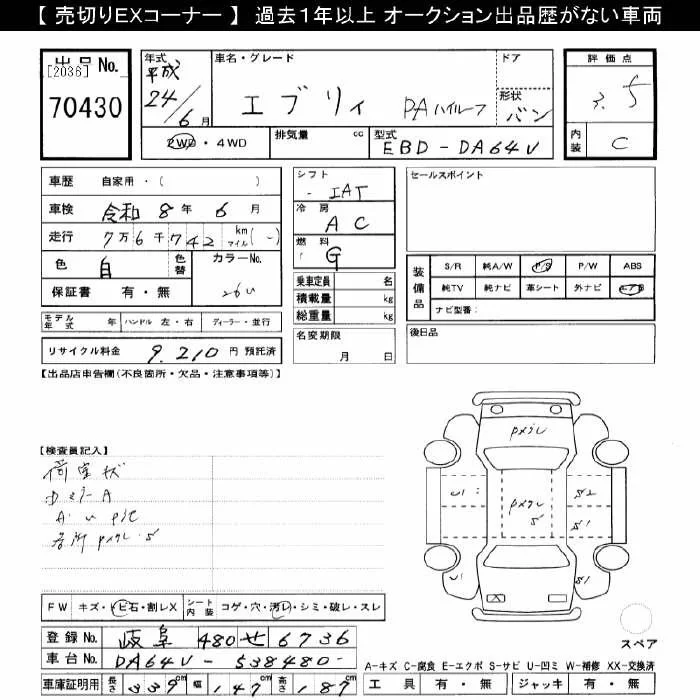 【 売切りEXコーナー 】 過去1年以上 オークション出品歴がない車両
出品 No. [2036]
70430
年式 平成 24/6月
車名・グレード エブリィ PAハイルーフ
ドア
形状 バン
評価点 3.5
内装 C
2WD・4WD
排気量 cc
型式 EBD-DA64V
車歴 自家用・( )
車検 令和 8年 6月
走行 7万6千742 km マイル (-)
色 白 色替
カラーNo. 26U
保証書 有・無
モデル年式 年 ハンドル 左・右 ディーラー・並行
リサイクル料金 9,210 円 預託済
シフト IAT
冷房 AC
燃料 G
乗車定員 名
積載量 kg
総重量 kg
名変期限 月 日
セールスポイント
装備品
S/R 純A/W P/S P/W ABS
純TV 純ナビ 革シート 外ナビ エアB
ナビ型番:
後日品
【出品店申告欄(不良箇所・欠品・注意事項等)】
【検査員記入】
荷室状
A
A・U
各所
FW キズ・トビ石・割レX
シート内装 コゲ・穴・汚レ・シミ・破レ・スレ
登録 No. 岐阜 480 せ 6736
車台 No. DA64V-538480-
車庫証明用 長さ 339cm 幅 147cm 高さ 187cm
U1
S2
S1
U1
S1
スペア
A-キズ C-腐食 E-エクボ S-サビ U-凹ミ W-補修 XX-交換済
工具 有・無 ジャッキ 有・無